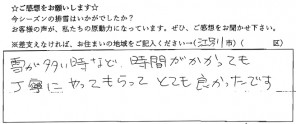 ☆ご感想をお願いします☆
今シーズンの排雪はいかがでしたか?
お客様の声が、私たちの原動力になっています。ぜひ、ご感想をお聞かせ下さい。
※差支えなければ、お住まいの地域をご記入ください→(江別市)( 区)
雪が多い時など、時間がかかっても
丁寧にやってもらってとても良かったです